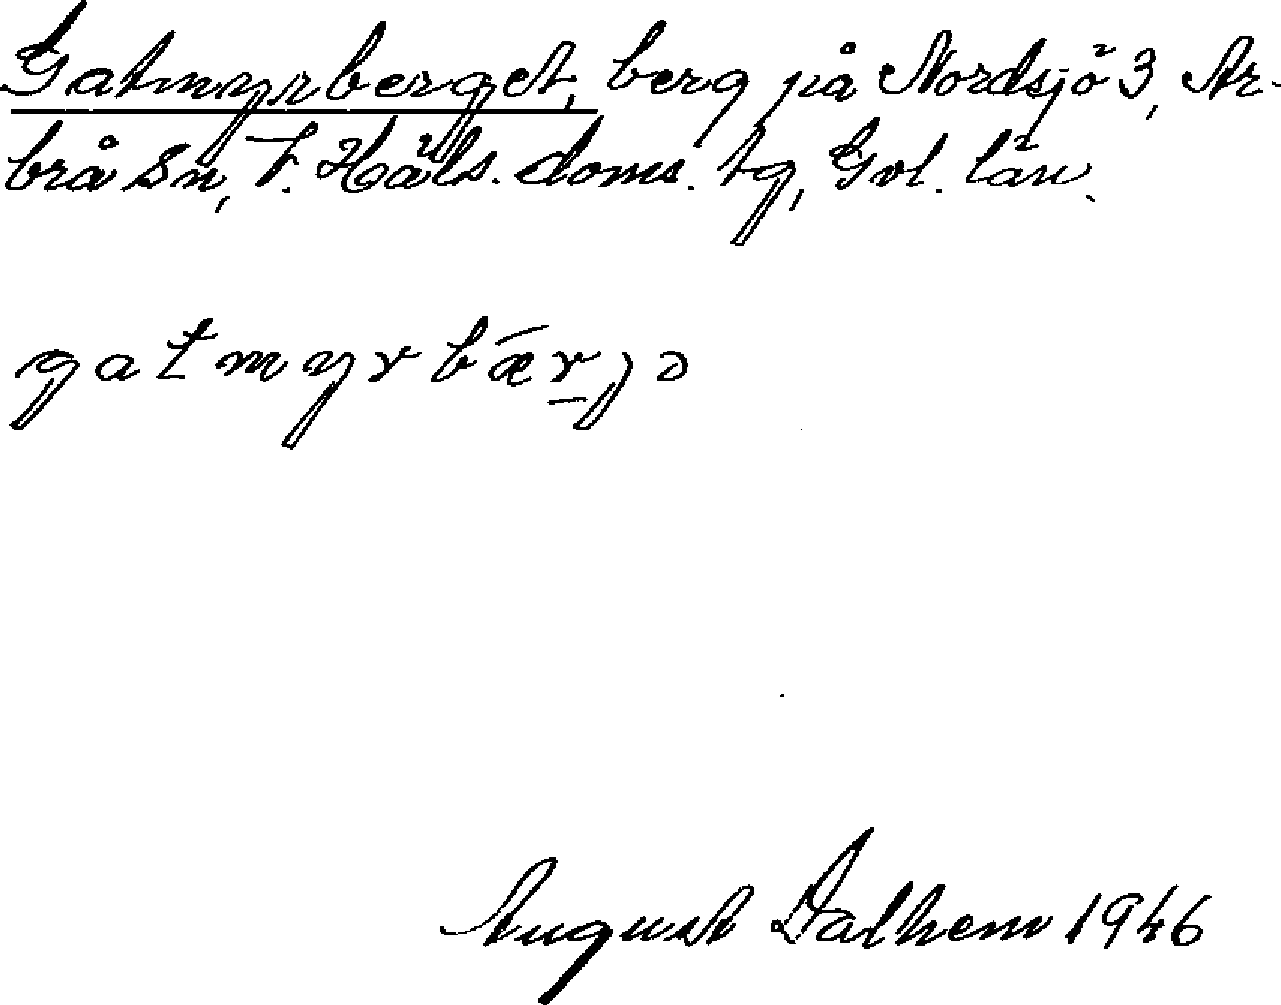 Gatmyrberget, berg på Nordsjö 3, Ar-
brå sn, V. Häls. doms. tg, Gvl. län.
gatmyrbǣrjə
August Dalhem 1946